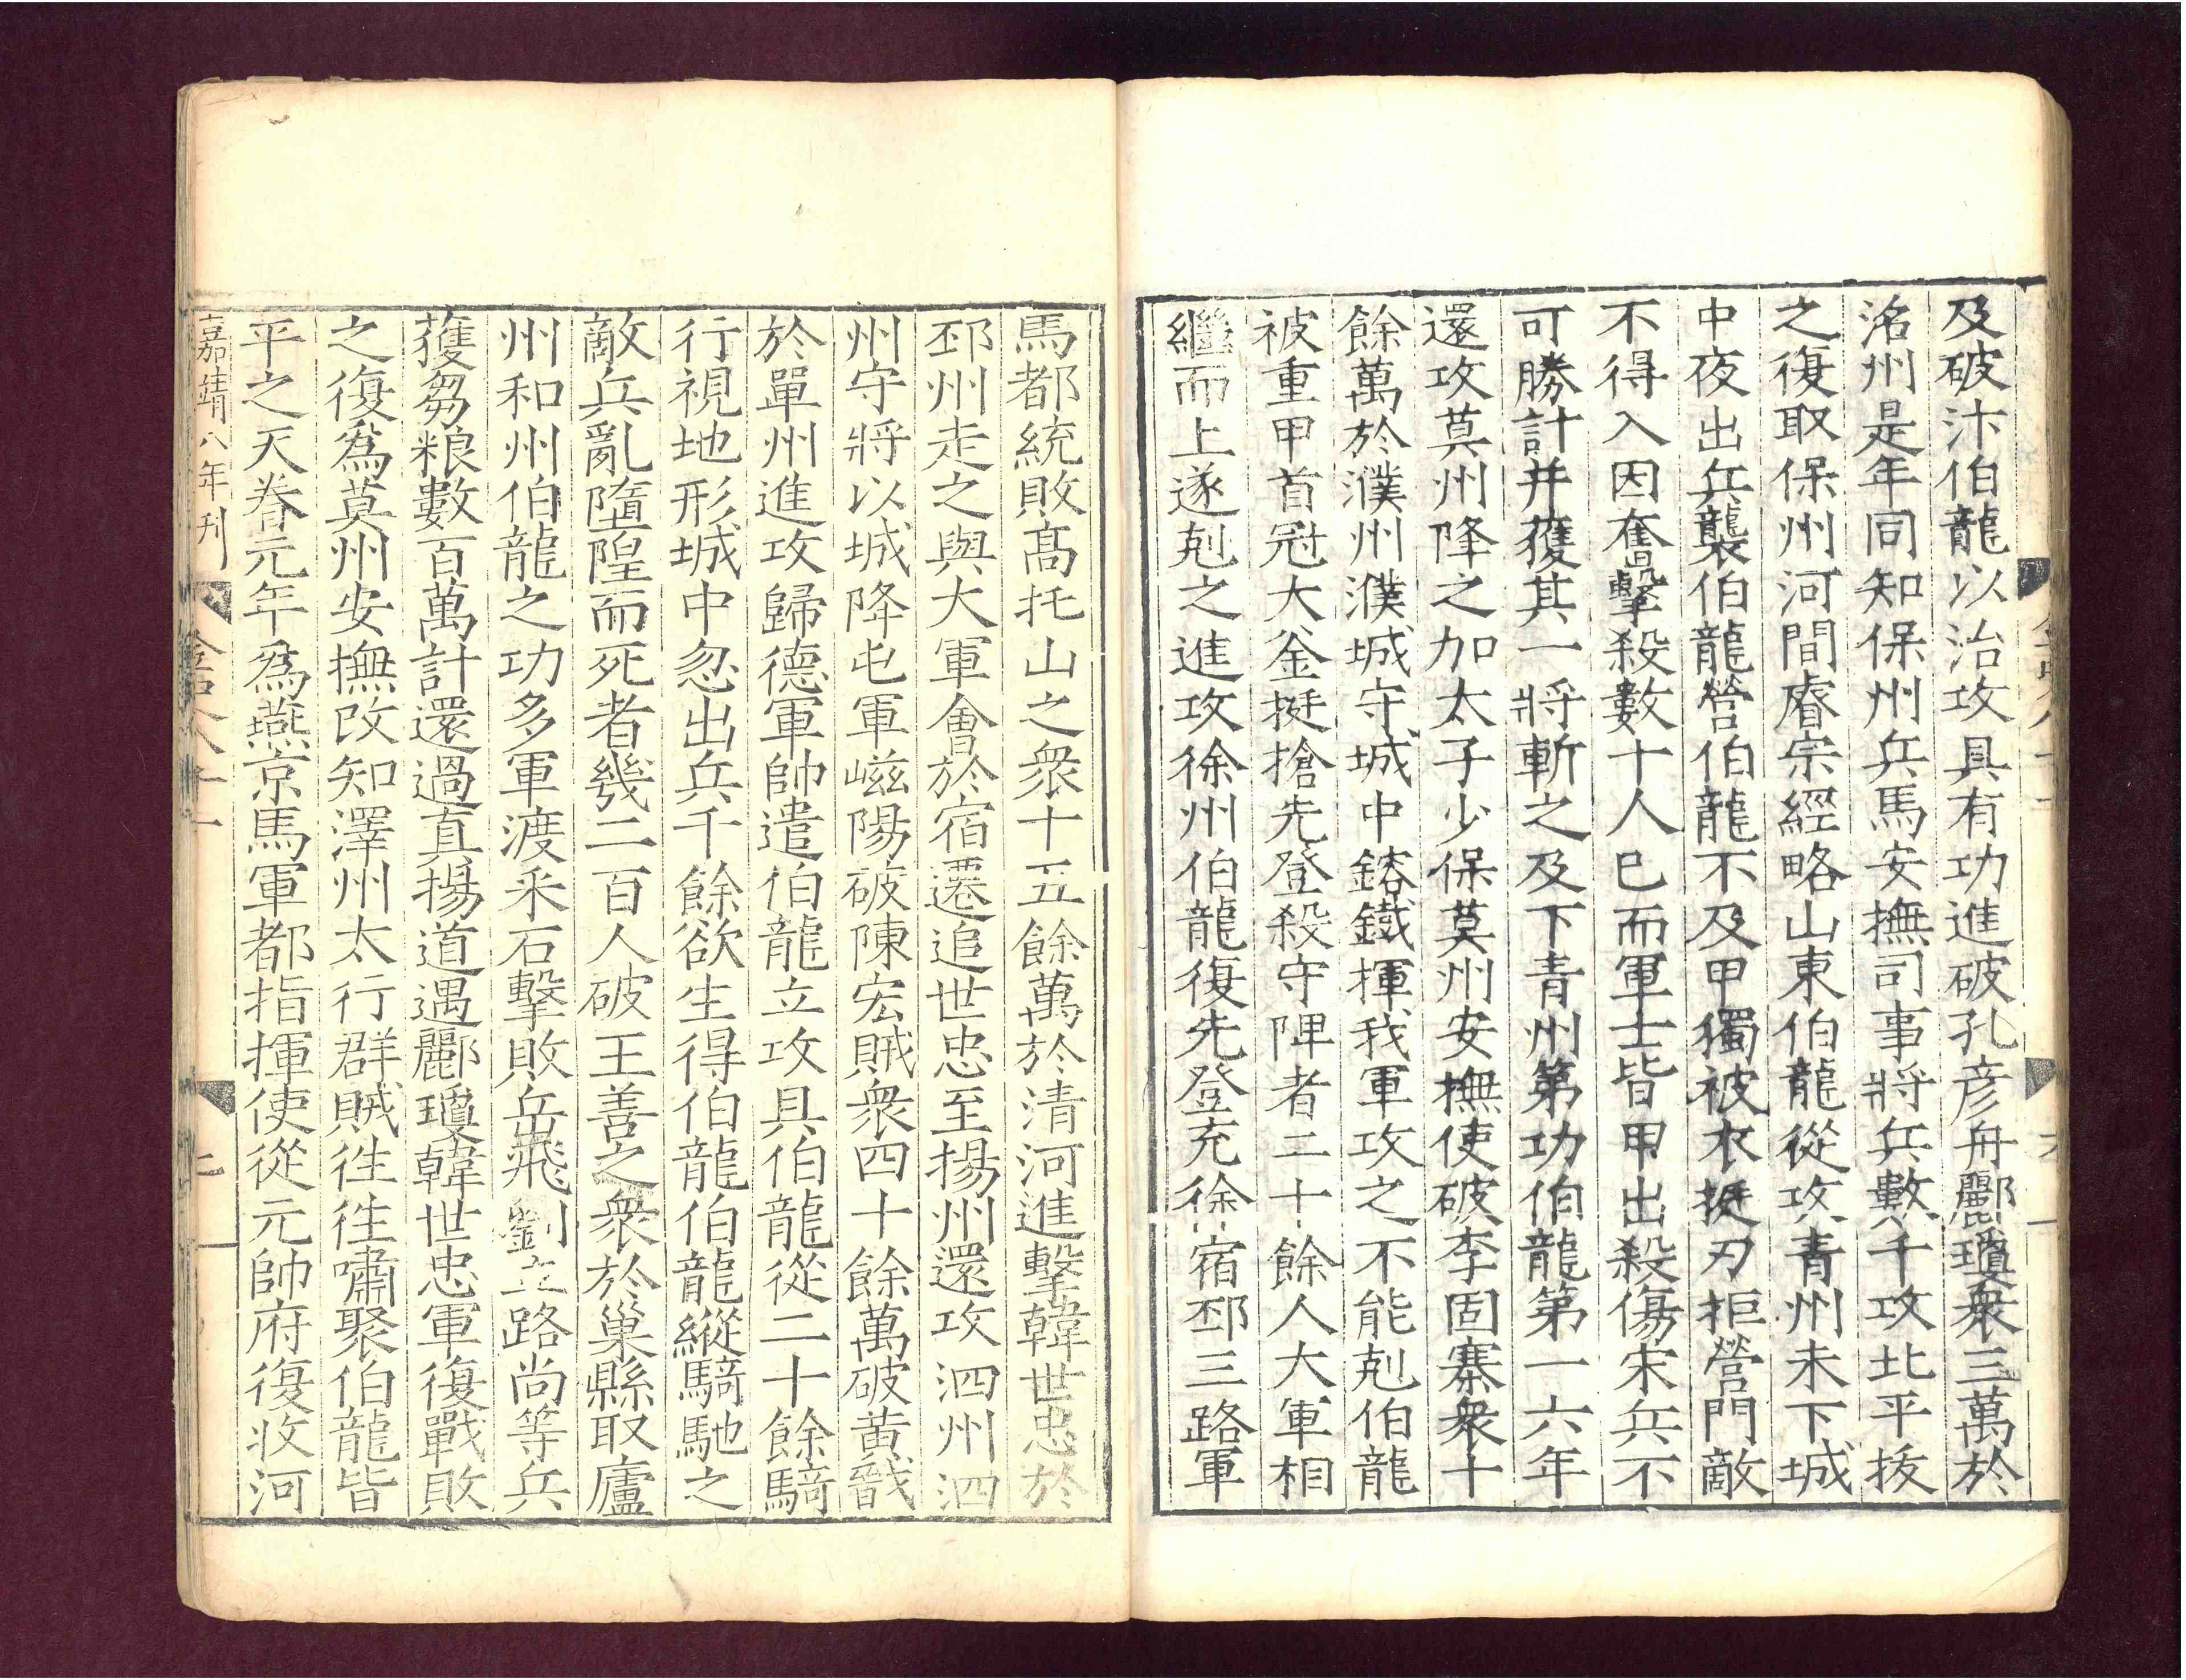 及破汴伯龍以治攻具有功進破孔彦舟酈瓊衆三萬於
洺州是年同知保州兵馬安撫司事將兵數千攻北平拔
之復取保州河間睿宗經略山東伯龍從攻青州未下城
中夜出兵襲伯龍營伯龍不及甲獨被衣挺刃拒營門敵
不得入因奮擊殺數十人巳而軍士皆甲出殺傷宋兵不
可勝計并獲其一將斬之及下青州第功伯龍第一六年
還攻莫州降之加太子少保莫州安撫使破李固寨衆十
餘萬於濮州濮城守城中鎔鐵揮我軍攻之不能剋伯龍
被重甲首冠大釜挺搶先登殺守陴者二十餘人大軍相
繼而上遂剋之進攻徐州伯龍復先登充徐宿邳三路軍
馬都統敗髙托山之衆十五餘萬於清河進擊韓世忠於
邳州走之與大軍會於宿遷追世忠至揚州還攻泗州泗
州守將以城降屯軍嵫陽破陳宏賊衆四十餘萬破黃戩
於單州進攻歸德軍帥遣伯龍立攻具伯龍從二十餘騎
行視地形城中忽出兵千餘欲生得伯龍伯龍縱騎馳之
敵兵亂墮隍而死者幾二百人破王善之衆於巢縣取廬
州和州伯龍之功多軍渡采石擊敗岳飛劉立路尚等兵
獲芻粮數百萬計還過真揚道遇酈瓊韓世忠軍復戰敗
之復爲莫州安撫改知澤州太行群賊徃徃嘯聚伯龍皆
平之天眷元年爲燕京馬軍都指揮使從元帥府復收河
嘉靖八年刊
金史八十一
二